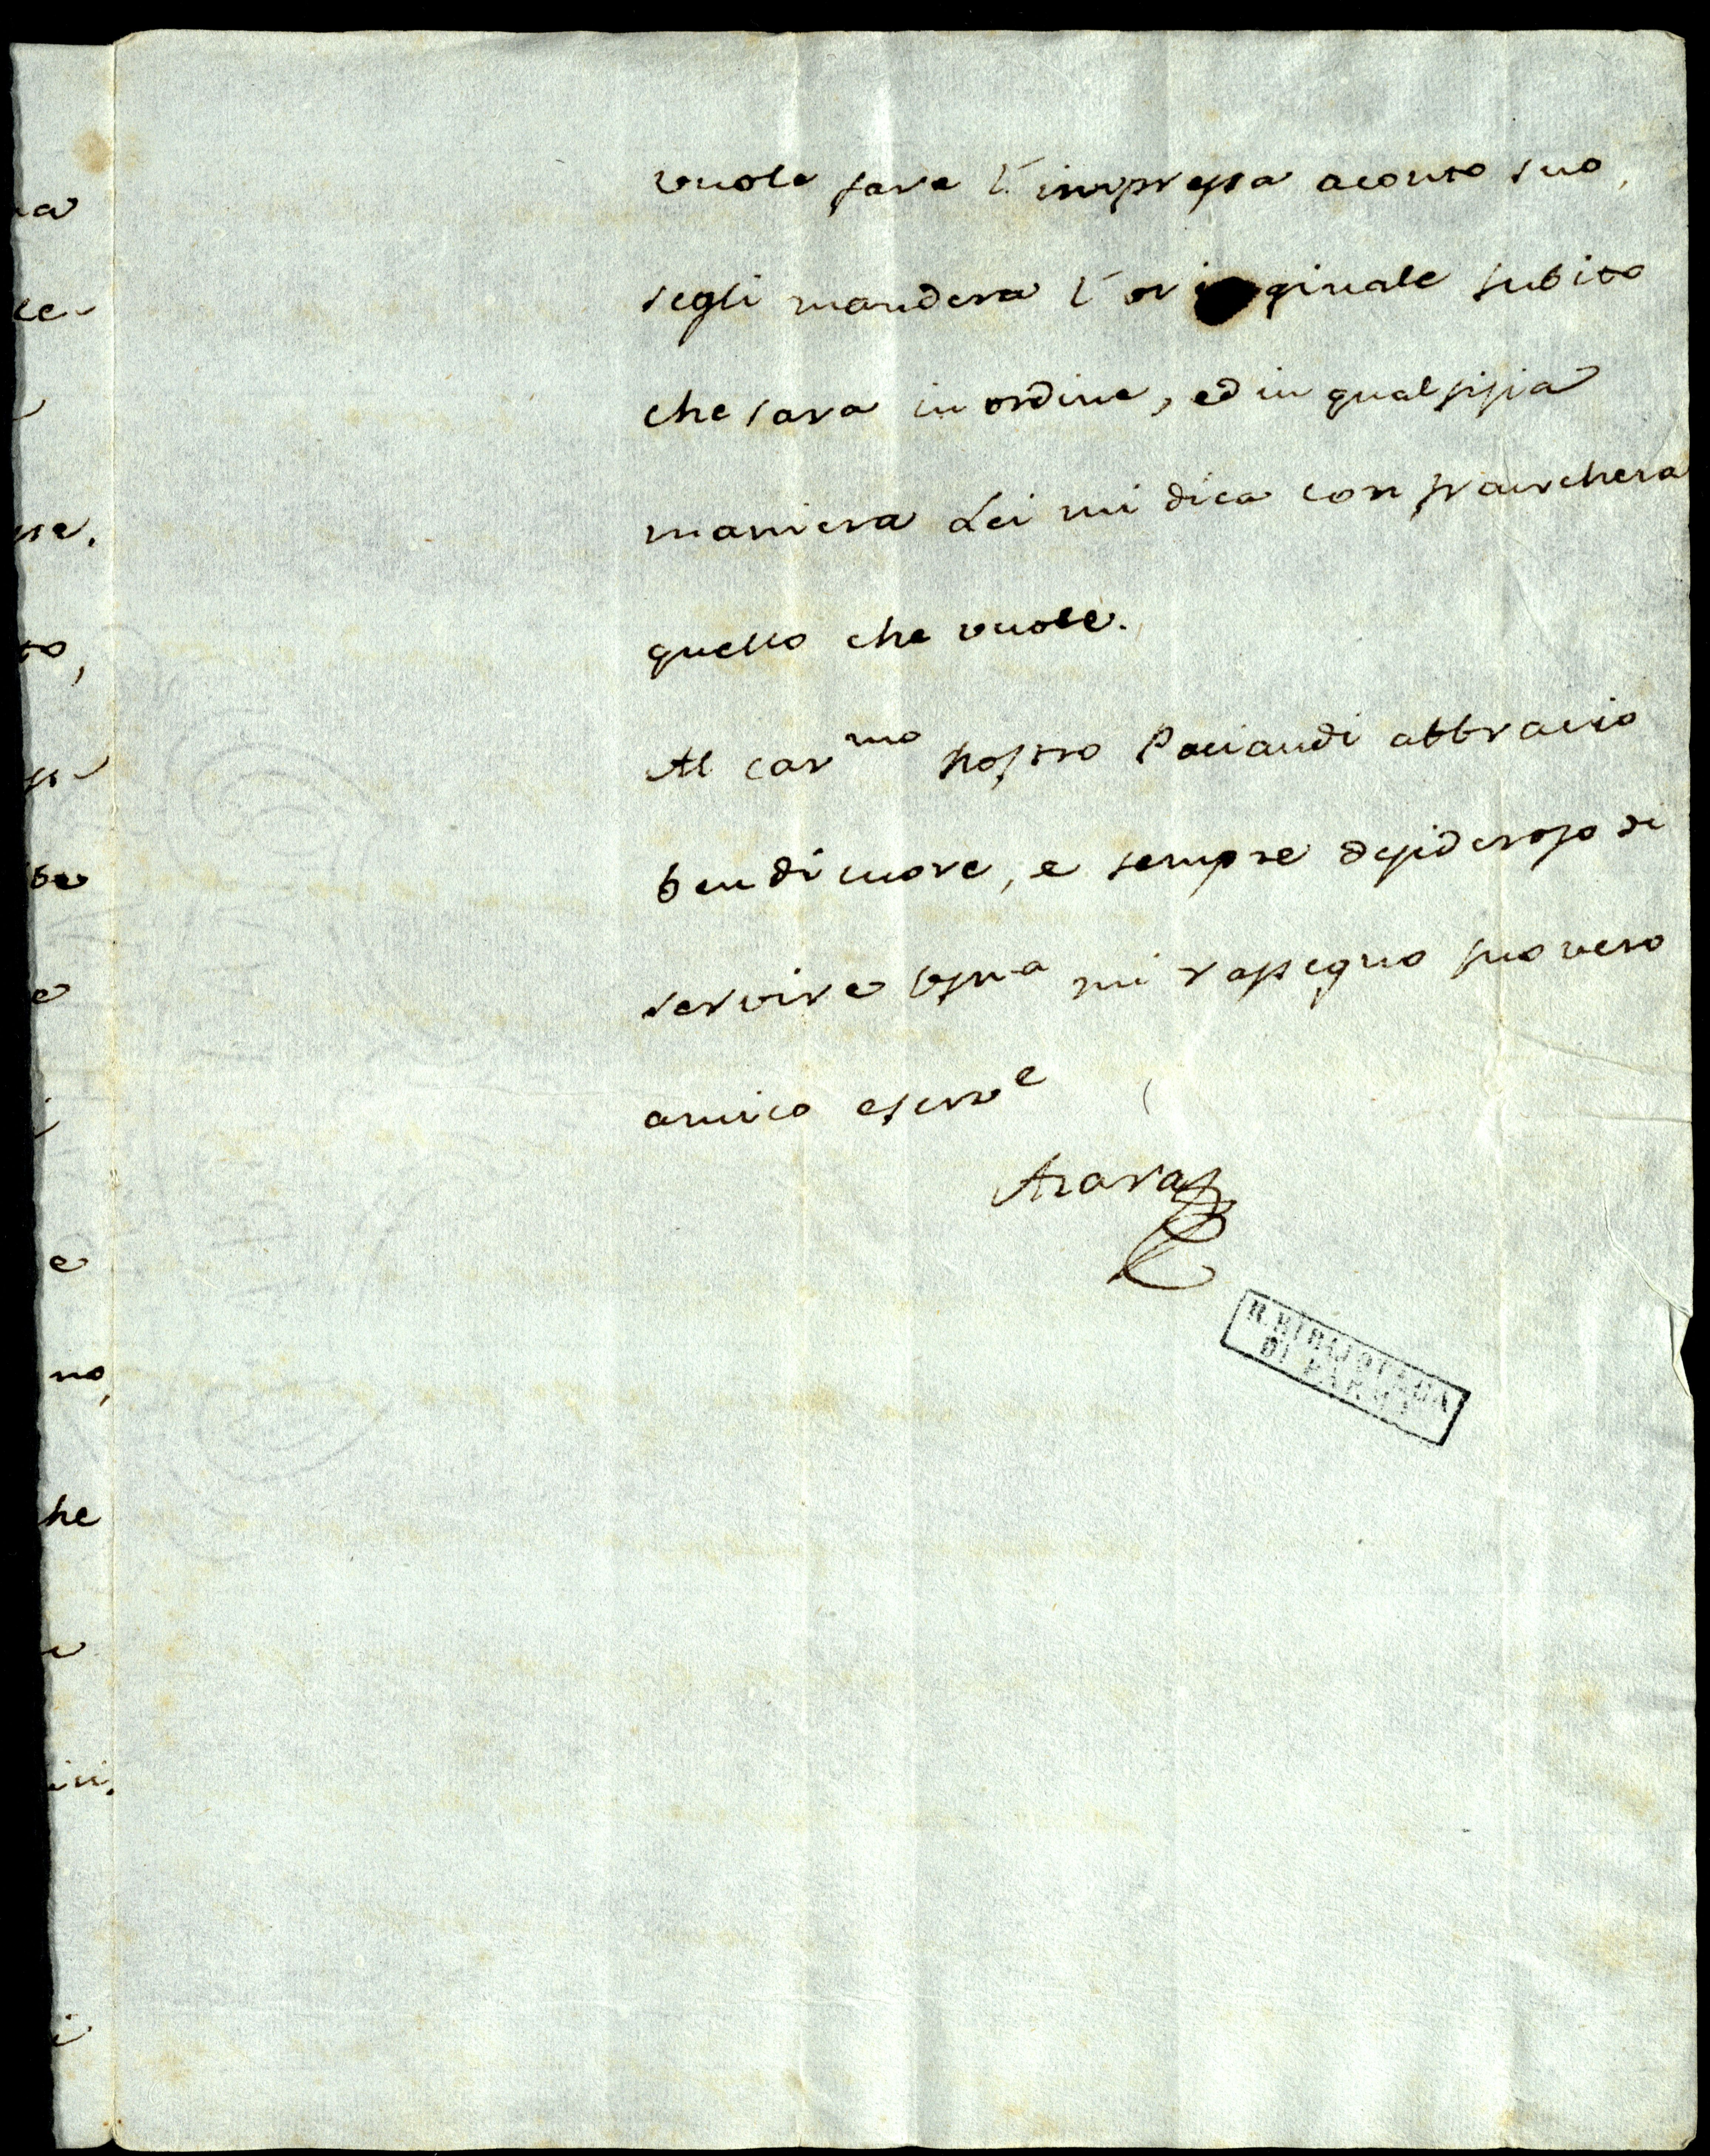 vuole fare l'impressa aconto suo,
segli mandera l'original subito
che sara in ordine, ed in qualsisia
maniera Lei mi dica con franchera
quello che vuole.
Al car.mo nostro Paciaudi abbracio
ben di cuore, e sempre desideroso di
servire Vsma mi rassegno suo vero
amico eserve
Azara
R. BIBLIOTECA
DI PARMA